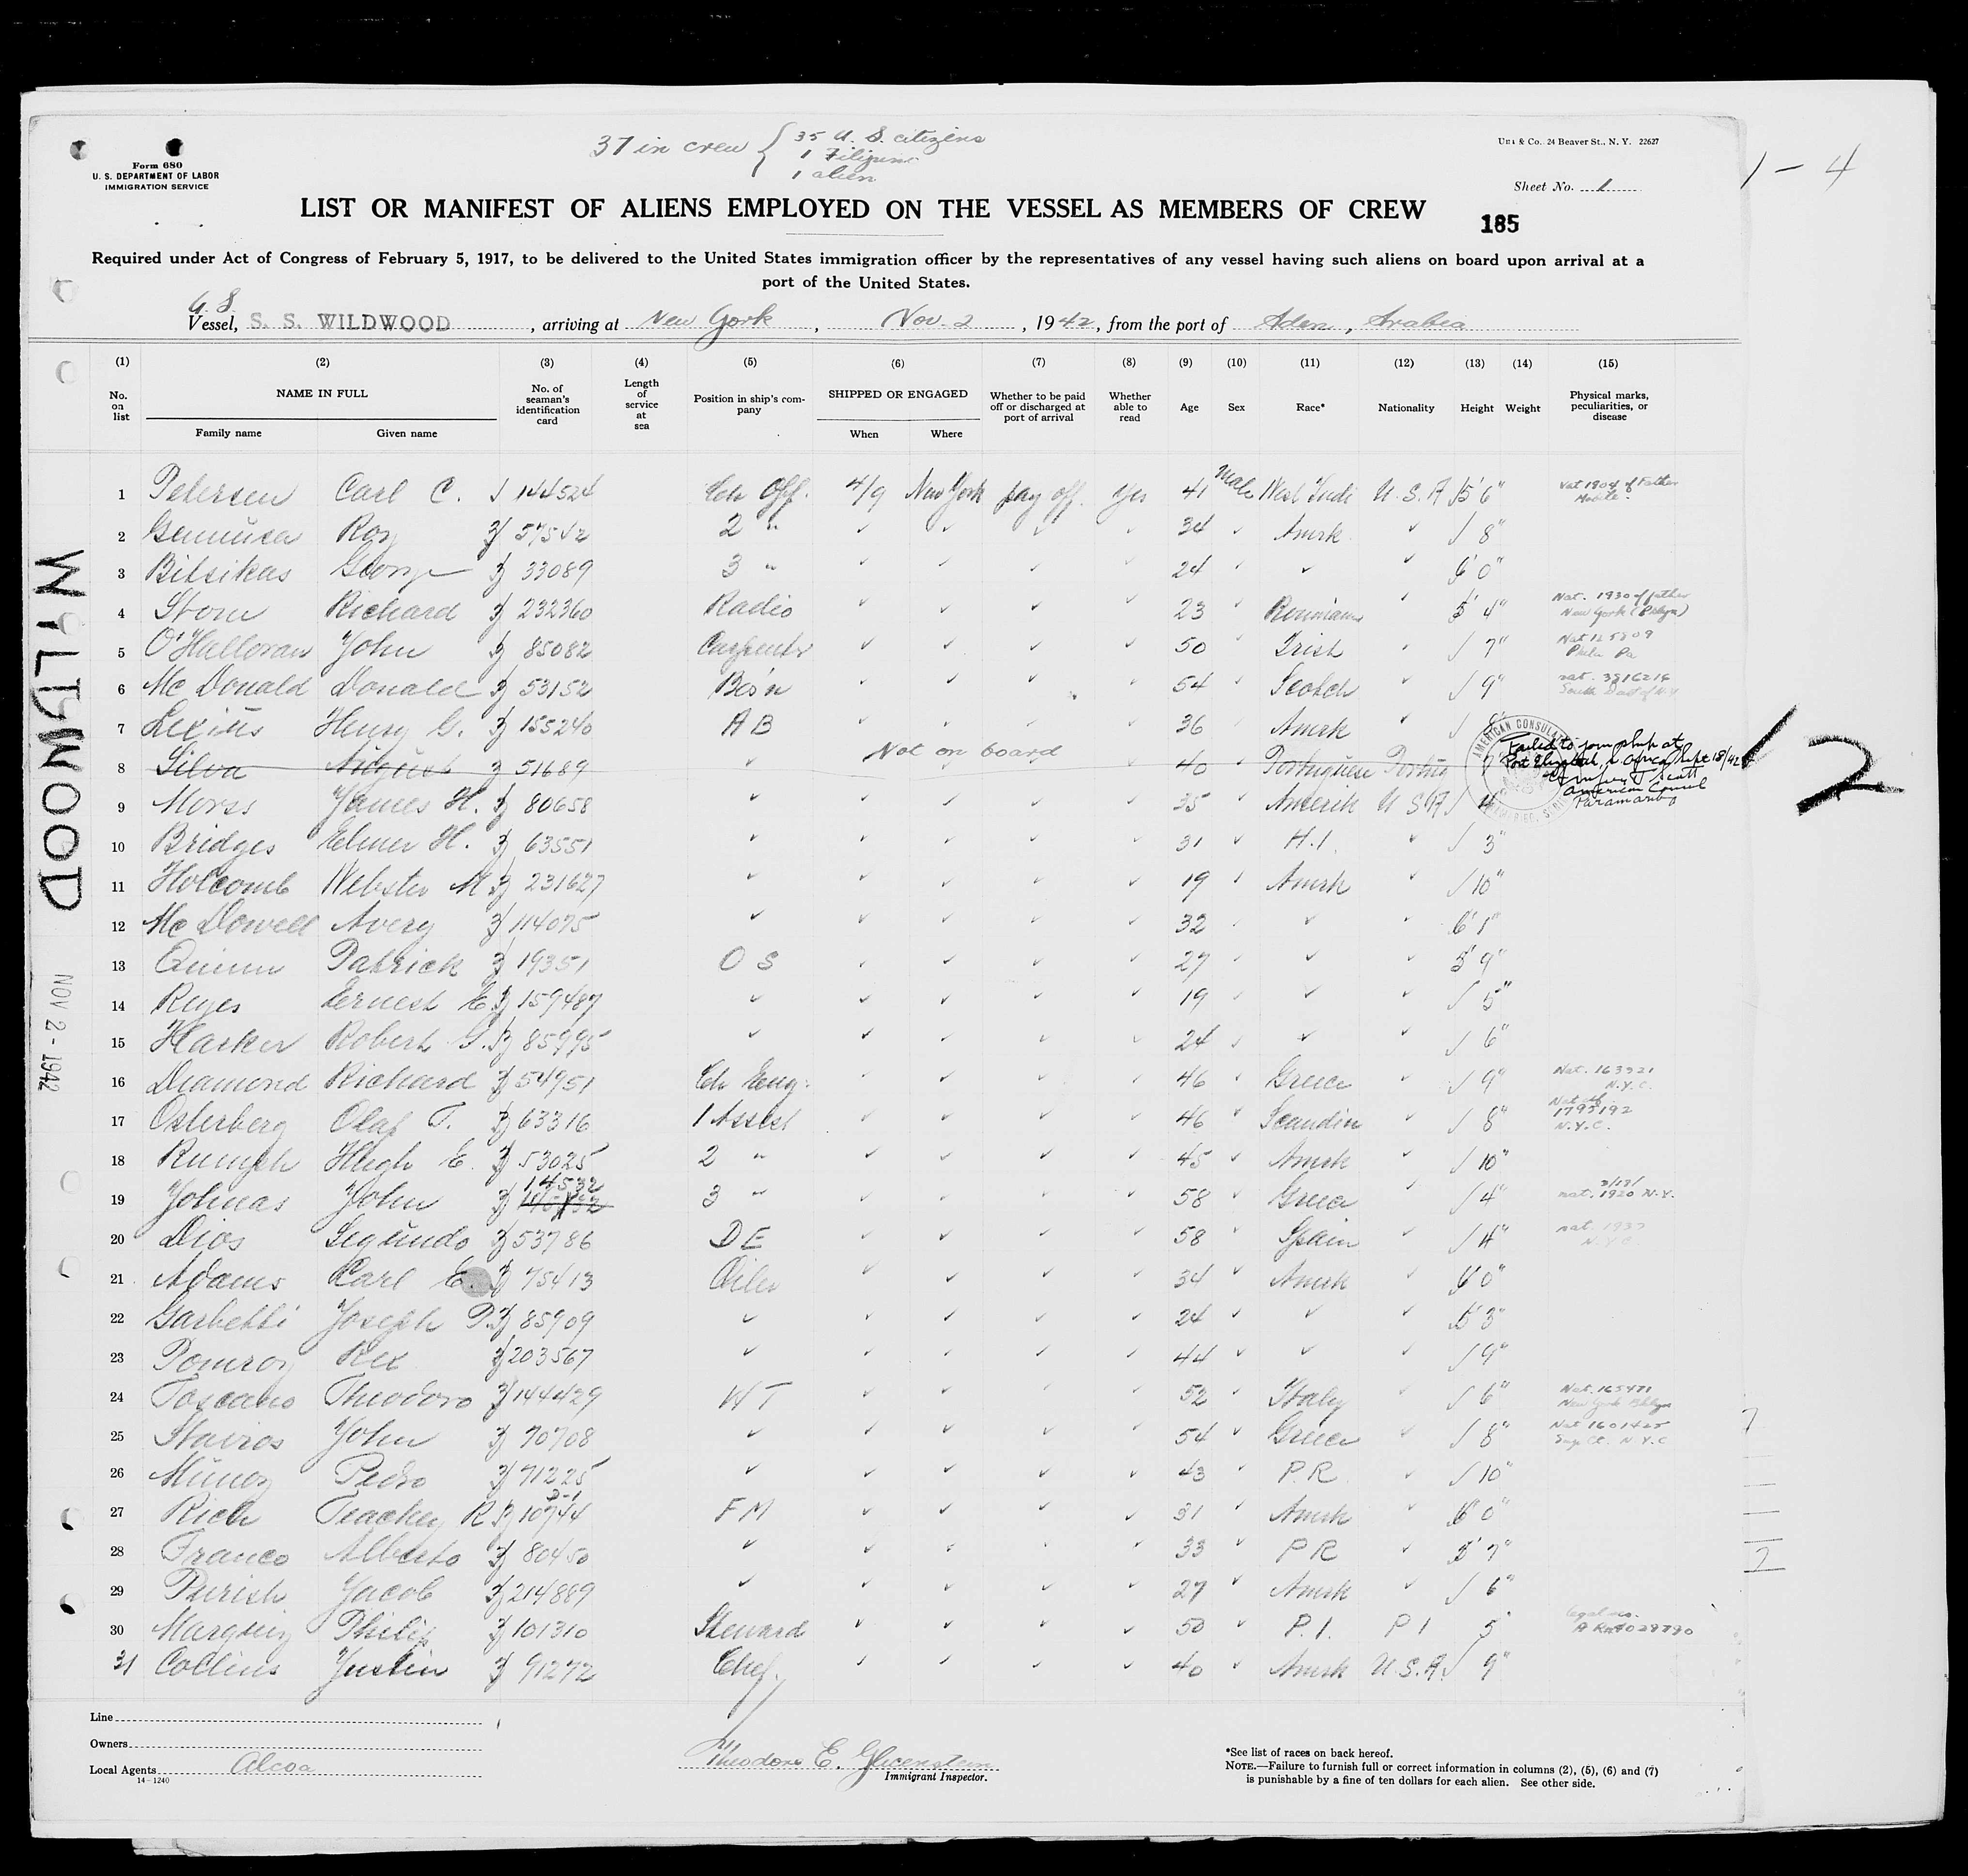 37 in crew { 35 U. S. citizens
1 Filipino
1 alien
Form 680
U. S. DEPARTMENT OF LABOR
IMMIGRATION SERVICE
& Co. 24 Beaver St., N. Y. 22627
1 - 4
Sheet No. 1
LIST OR MANIFEST OF ALIENS EMPLOYED ON THE VESSEL AS MEMBERS OF CREW
185
Required under Act of Congress of February 5, 1917, to be delivered to the United States immigration officer by the representatives of any vessel having such aliens on board upon arrival at a
port of the United States.
Vessel, S. S. WILDWOOD, arriving at New York, Nov. 2, 1942, from the port of Aden, Arabia
(1) (2) (3) (4) (5) (6) (7) (8) (9) (10) (11) (12) (13) (14) (15)
No. on list NAME IN FULL Family name Given name No. of seaman's identification card Length of service at sea Position in ship's company SHIPPED OR ENGAGED When Where Whether to be paid off or discharged at port of arrival Whether able to read Age Sex Race* Nationality Height Weight Physical marks, peculiarities, or disease
1 Petersen Carl C. 144524 Ch Off. 4/9 New York pay off. yes 41 Male West Indi U.S.A 5'6" Nat 1904 of Father Mobile
2 Roy Z 57542 2 " ✓ ✓ ✓ ✓ 34 ✓ Amrk ✓ / 8"
3 Bitsikas George Z 33089 3 " ✓ ✓ ✓ ✓ 24 ✓ ✓ ✓ 6'0"
4 Storn Richard Z 232360 Radio ✓ ✓ ✓ ✓ 23 ✓ ✓ 5'4" Nat. 1930 of father New York (Bklyn)
5 O'Halloran John Z 85082 Carpenter ✓ ✓ ✓ ✓ 50 ✓ Irish ✓ / 7" Nat 125809 Phila Pa
6 Mc Donald Donald Z 53152 Bos'n ✓ ✓ ✓ ✓ 54 ✓ Scotch ✓ / 9" nat. 3816214 South Dist of N.Y
7 Lexius Henry G. Z 155240 A B ✓ ✓ ✓ ✓ 36 ✓ Amrk ✓ / 8"
8 Silva August Z 51689 ✓ Not on board 40 ✓ Portuguese Portug 7 Failed to join ship at Port Elizabeth, S. Africa, Sept 18/42 American Consul Paramaribo
12
9 Morss James H. Z 80658 ✓ ✓ ✓ ✓ ✓ 35 ✓ Amerik U S A / 4"
10 Bridges Elmer H. Z 63551 ✓ ✓ ✓ ✓ ✓ 31 ✓ H.I. ✓ / 3"
11 Holcomb Webster M Z 231627 ✓ ✓ ✓ ✓ ✓ 19 ✓ Amrk ✓ / 10"
12 Mc Dowell Avery Z 114075 ✓ ✓ ✓ ✓ ✓ 32 ✓ ✓ ✓ 6'1"
13 Quinn Patrick Z 19351 O S ✓ ✓ ✓ ✓ 27 ✓ ✓ ✓ 5'9"
14 Reyes Ernest E. Z 159487 ✓ ✓ ✓ ✓ ✓ 19 ✓ ✓ ✓ / 5"
15 Harker Robert G. Z 85995 ✓ ✓ ✓ ✓ ✓ 24 ✓ ✓ ✓ / 6"
16 Diamond Richard Z 54951 Ch Eng. ✓ ✓ ✓ ✓ 46 ✓ Greece ✓ / 9" Nat. 163921 N.Y.C.
17 Osterberg Olaf T. Z 63316 1 Assist ✓ ✓ ✓ ✓ 46 ✓ Scandin ✓ / 8" Nat 1793192 N.Y.C.
18 Rumph Hugh E. Z 53025 2 " ✓ ✓ ✓ ✓ 45 ✓ Amrk ✓ / 10"
19 Yohnas John Z 14532 3 " ✓ ✓ ✓ ✓ 58 ✓ Greece ✓ / 4" nat. 1920 N.Y.
20 Dios Segundo Z 53786 D E ✓ ✓ ✓ ✓ 58 ✓ Spain ✓ / 4" nat. N.Y.C.
21 Adams Karl E. Z 75413 Oiler ✓ ✓ ✓ ✓ 34 ✓ Amrk ✓ 6'0"
22 Joseph P. Z 85909 ✓ ✓ ✓ ✓ ✓ 24 ✓ ✓ ✓ 5'3"
23 Pomroy Rex Z 203567 ✓ ✓ ✓ ✓ ✓ 44 ✓ ✓ ✓ / 9"
24 Toscano Theodoro Z 144429 W T ✓ ✓ ✓ ✓ 52 ✓ Italy ✓ / 6" Nat. 165471 New York Bklyn
25 Stavros John Z 70708 ✓ ✓ ✓ ✓ ✓ 54 ✓ Greece ✓ / 8" Nat 1601425 Sup Ct. N.Y.C
26 Munoz Pedro Z 71225 ✓ ✓ ✓ ✓ ✓ 43 ✓ P.R. ✓ / 10"
27 Rich Teackey R. Z 10744 F M ✓ ✓ ✓ ✓ 31 ✓ Amrk ✓ 6'0"
28 Franco Alberto Z 80450 ✓ ✓ ✓ ✓ ✓ 33 ✓ P R ✓ 5'7"
29 Purish Jacob Z 214889 ✓ ✓ ✓ ✓ ✓ 27 ✓ Amrk ✓ / 6"
30 Philip Z 101310 Steward ✓ ✓ ✓ ✓ 50 ✓ P.I. P I 5'
31 Collins Justin Z 91272 Chef. ✓ ✓ ✓ ✓ 40 ✓ Amrk U.S.A. / 9"
WILDWOOD
NOV 2 - 1942
Line
Owners
Local Agents Alcoa
14-1240
Theodore E.
Immigrant Inspector.
*See list of races on back hereof.
NOTE.—Failure to furnish full or correct information in columns (2), (5), (6) and (7)
is punishable by a fine of ten dollars for each alien. See other side.